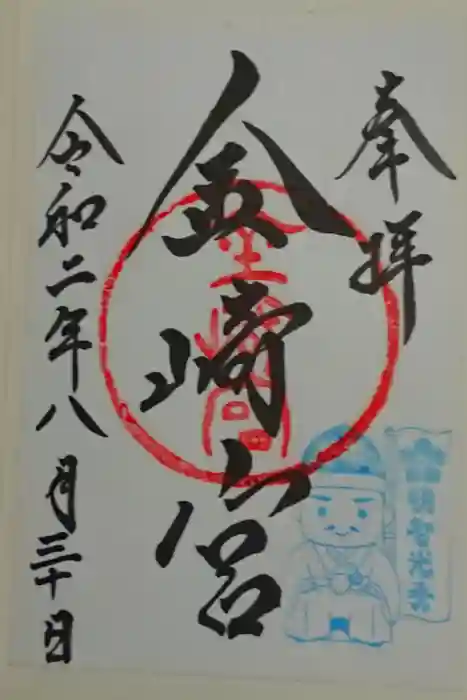 奉拝
金崎宮
金崎宮
令和二年八月三十日
明智光秀